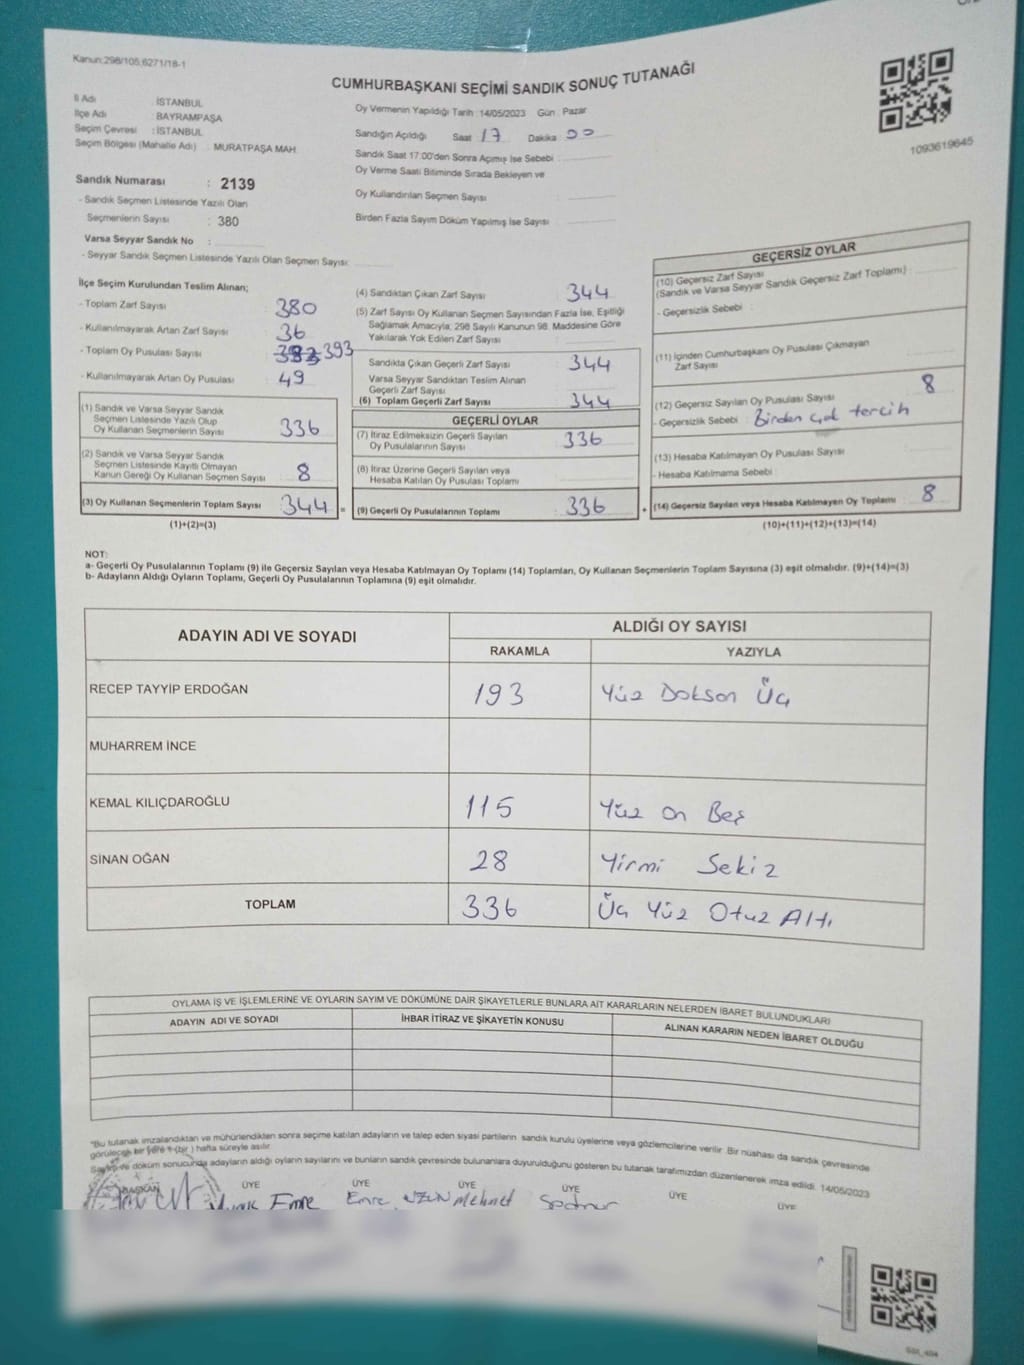 Kanun:298/105,6271/18-1
CUMHURBAŞKANI SEÇİMİ SANDIK SONUÇ TUTANAĞI
1093619645
İl Adı : İSTANBUL
İlçe Adı : BAYRAMPAŞA
Seçim Çevresi : İSTANBUL
Seçim Bölgesi (Mahalle Adı) : MURATPAŞA MAH
Sandık Numarası : 2139
- Sandık Seçmen Listesinde Yazılı Olan
Seçmenlerin Sayısı : 380
Varsa Seyyar Sandık No :
- Seyyar Sandık Seçmen Listesinde Yazılı Olan Seçmen Sayısı:
Oy Vermenin Yapıldığı Tarih :14/05/2023 Gün : Pazar
Sandığın Açıldığı Saat 17 Dakika 00
Sandık Saat 17:00'den Sonra Açımış İse Sebebi :
Oy Verme Saati Bitiminde Sırada Bekleyen ve
Oy Kullandırılan Seçmen Sayısı :
Birden Fazla Sayım Döküm Yapılmış İse Sayısı :
İlçe Seçim Kurulundan Teslim Alınan;
- Toplam Zarf Sayısı : 380
- Kullanılmayarak Artan Zarf Sayısı : 36
- Toplam Oy Pusulası Sayısı : 393
- Kullanılmayarak Artan Oy Pusulası : 49
(1) Sandık ve Varsa Seyyar Sandık
Seçmen Listesinde Yazılı Olup
Oy Kullanan Seçmenlerin Sayısı 336
(2) Sandık ve Varsa Seyyar Sandık
Seçmen Listesinde Kayıtlı Olmayan
Kanun Gereği Oy Kullanan Seçmen Sayısı 8
(3) Oy Kullanan Seçmenlerin Toplam Sayısı 344 =
(1)+(2)=(3)
(4) Sandıktan Çıkan Zarf Sayısı : 344
(5) Zarf Sayısı Oy Kullanan Seçmen Sayısından Fazla İse, Eşitliği
Sağlamak Amacıyla, 298 Sayılı Kanunun 98. Maddesine Göre
Yakılarak Yok Edilen Zarf Sayısı :
Sandıkta Çıkan Geçerli Zarf Sayısı : 344
Varsa Seyyar Sandıktan Teslim Alınan
Geçerli Zarf Sayısı :
(6) Toplam Geçerli Zarf Sayısı : 344
GEÇERLİ OYLAR
(7) İtiraz Edilmeksizin Geçerli Sayılan
Oy Pusulalarının Sayısı : 336
(8) İtiraz Üzerine Geçerli Sayılan veya
Hesaba Katılan Oy Pusulası Toplamı :
(9) Geçerli Oy Pusulalarının Toplamı : 336 +
GEÇERSİZ OYLAR
(10) Geçersiz Zarf Sayısı
(Sandık ve Varsa Seyyar Sandık Geçersiz Zarf Toplamı) :
- Geçersizlik Sebebi :
(11) İçinden Cumhurbaşkanı Oy Pusulası Çıkmayan
Zarf Sayısı :
(12) Geçersiz Sayılan Oy Pusulası Sayısı : 8
- Geçersizlik Sebebi : Birden çok tercih
(13) Hesaba Katılmayan Oy Pusulası Sayısı :
- Hesaba Katılmama Sebebi :
(14) Geçersiz Sayılan veya Hesaba Katılmayan Oy Toplamı : 8
(10)+(11)+(12)+(13)=(14)
NOT:
a- Geçerli Oy Pusulalarının Toplamı (9) ile Geçersiz Sayılan veya Hesaba Katılmayan Oy Toplamı (14) Toplamları, Oy Kullanan Seçmenlerin Toplam Sayısına (3) eşit olmalıdır. (9)+(14)=(3)
b- Adayların Aldığı Oyların Toplamı, Geçerli Oy Pusulalarının Toplamına (9) eşit olmalıdır.
ADAYIN ADI VE SOYADI ALDIĞI OY SAYISI
RAKAMLA YAZIYLA
RECEP TAYYİP ERDOĞAN 193 Yüz Doksan Üç
MUHARREM İNCE
KEMAL KILIÇDAROĞLU 115 Yüz on Beş
SİNAN OĞAN 28 Yirmi Sekiz
TOPLAM 336 Üç Yüz Otuz Altı
OYLAMA İŞ VE İŞLEMLERİNE VE OYLARIN SAYIM VE DÖKÜMÜNE DAİR ŞİKAYETLERLE BUNLARA AİT KARARLARIN NELERDEN İBARET BULUNDUKLARI
ADAYIN ADI VE SOYADI İHBAR İTİRAZ VE ŞİKAYETİN KONUSU ALINAN KARARIN NEDEN İBARET OLDUĞU
*Bu tutanak imzalandıktan ve mühürlendikten sonra seçime katılan adayların ve talep eden siyasi partilerin sandık kurulu üyelerine veya gözlemcilerine verilir. Bir nüshası da sandık çevresinde
görülecek bir yere 1 (bir) hafta süreyle asılır.
Sayım ve döküm sonucunda adayların aldığı oyların sayılarını ve bunların sandık çevresinde bulunanlara duyurulduğunu gösteren bu tutanak tarafımızdan düzenlenerek imza edildi. 14/05/2023
BAŞKAN ÜYE ÜYE ÜYE ÜYE ÜYE ÜYE
Emre Emre UZUN Mehmet